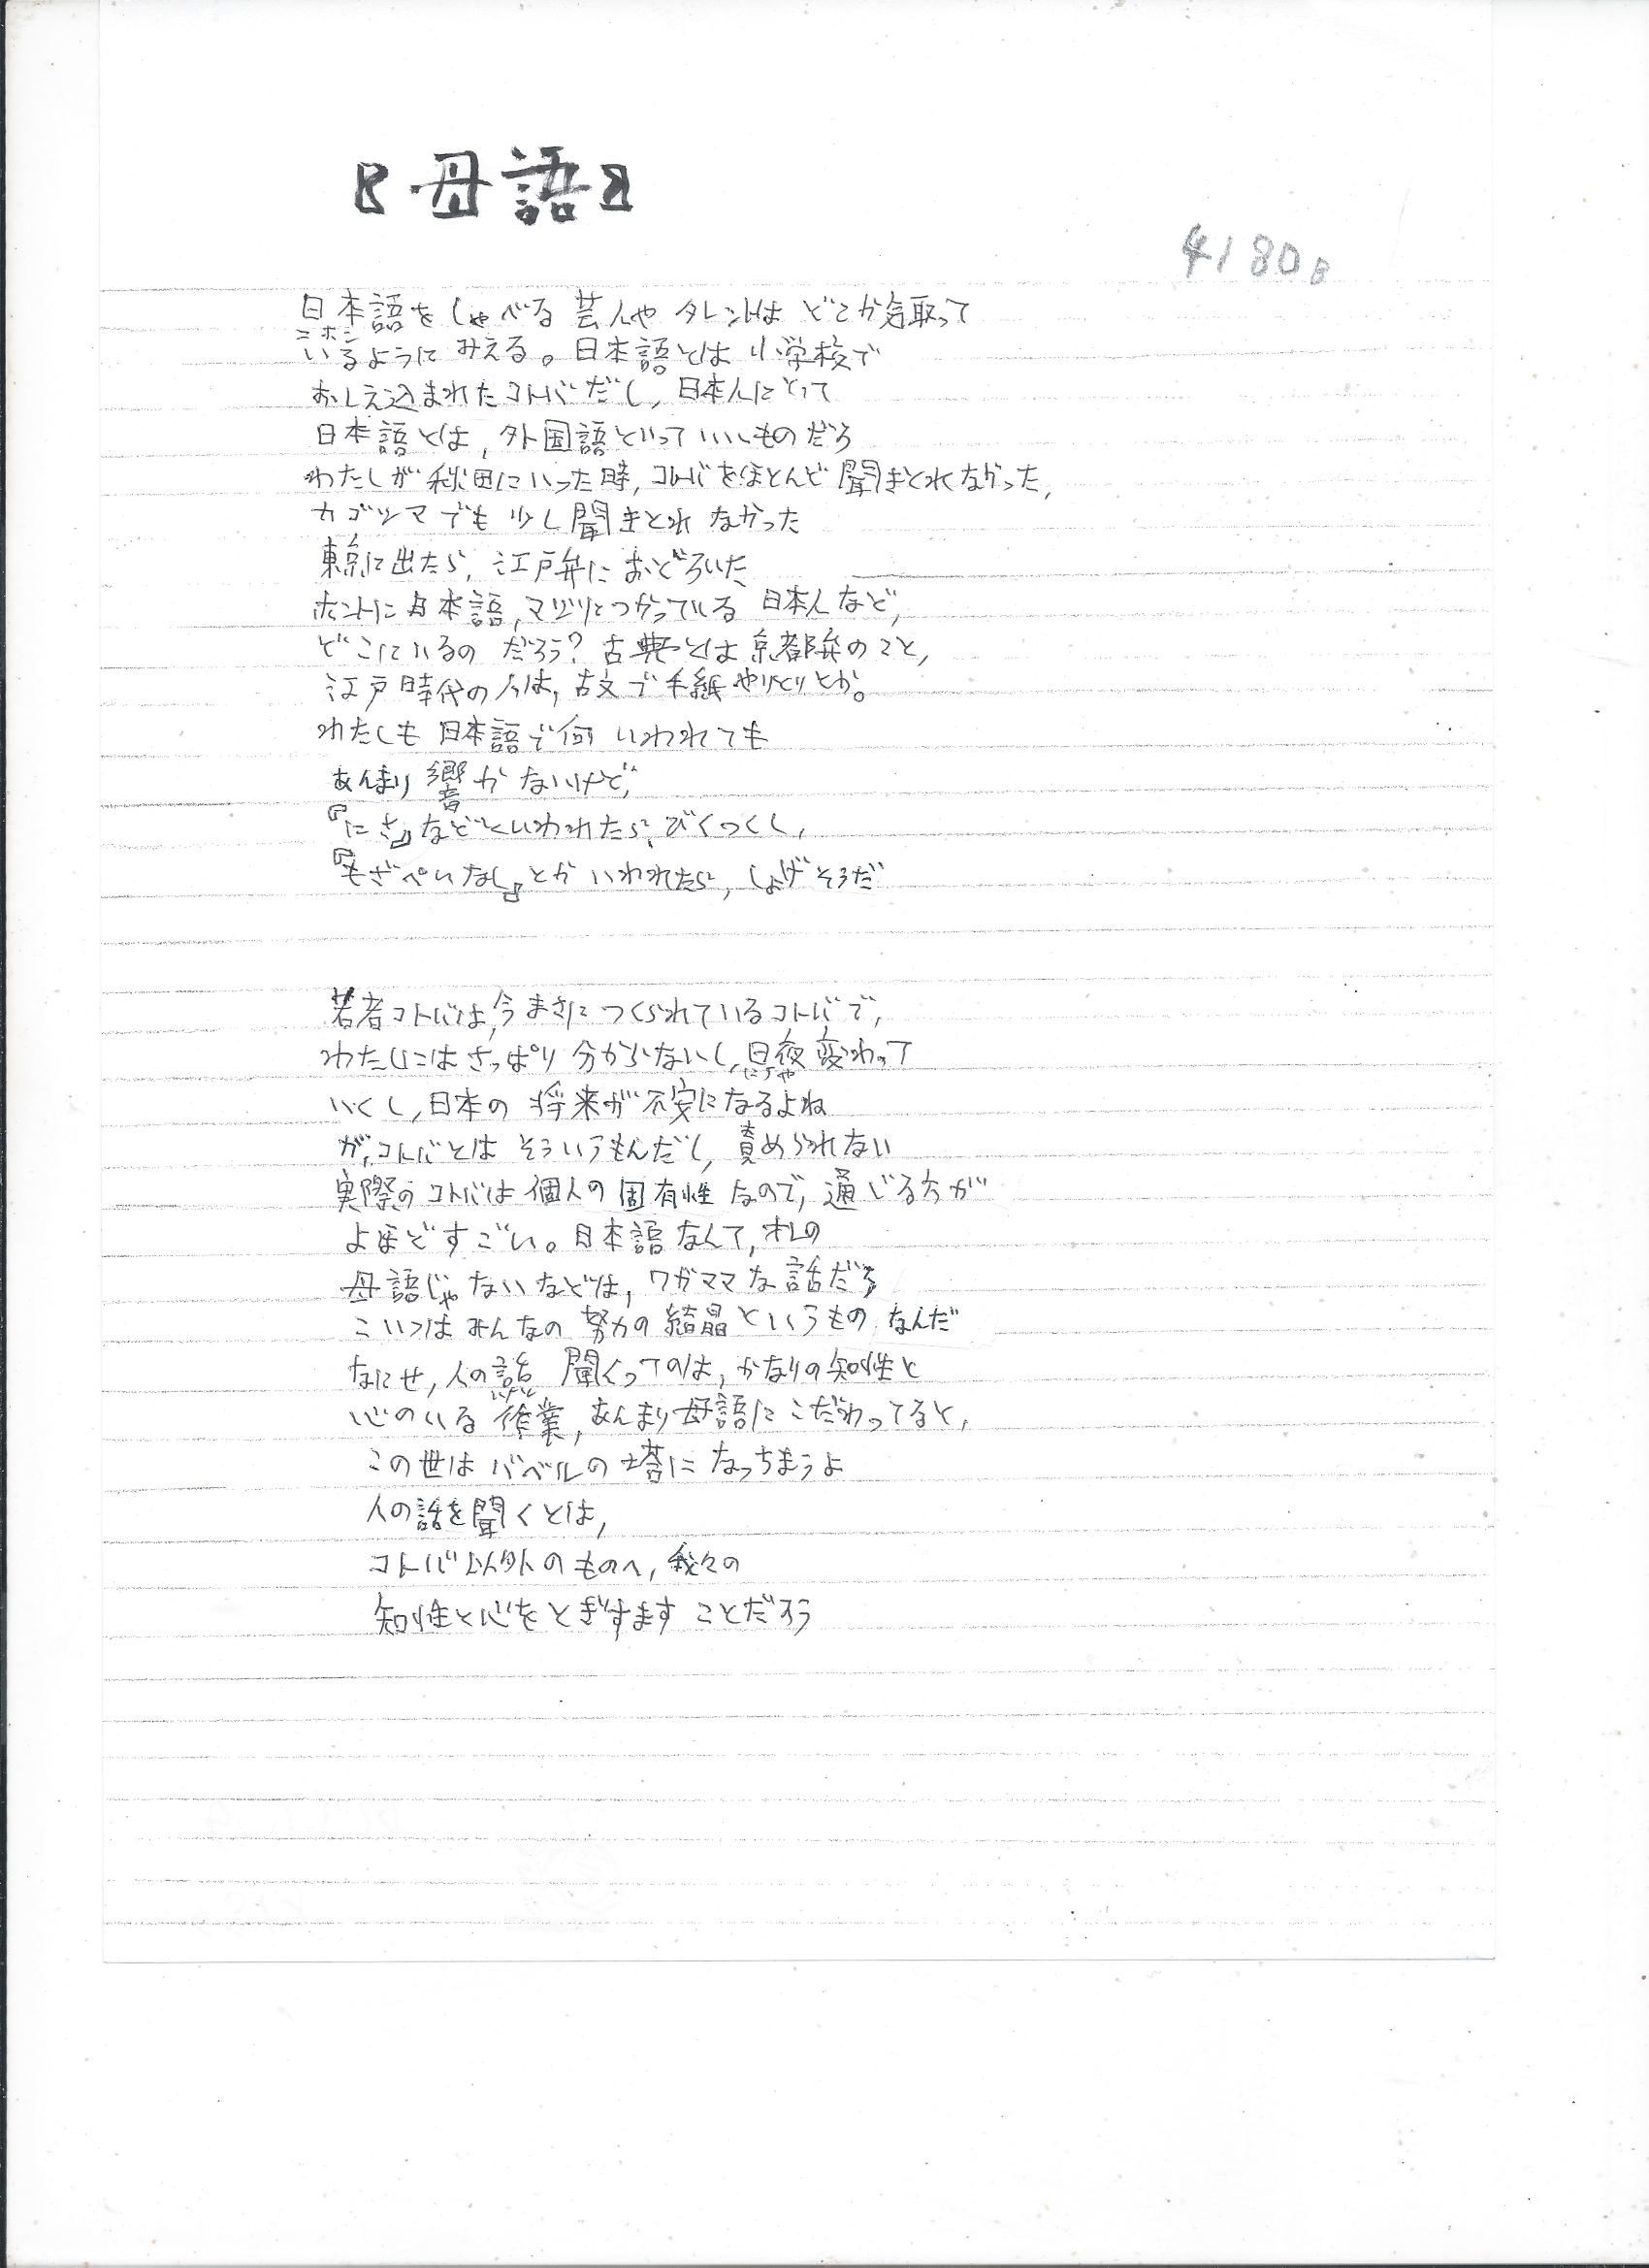 【母語】
4180B
日本語をしゃべる芸人やタレントはどこか気取って
ニホン
いるようにみえる。日本語とは小学校で
おしえ込まれたコトバだし,日本人にとって
日本語とは,外国語といっていいものだろ
わたしが秋田にいった時,コトバをほとんど聞きとれなかった,
カゴツマでも少し聞きとれなかった
東京に出たら,江戸弁におどろいた
ホントに日本語,マジリとつかっている日本人など,
どこにいるのだろう?古典とは京都弁のこと,
江戸時代の人は,古文で手紙やりとりとか。
わたしも日本語で何いわれても
あんまり響かないけど,
『にさ』などといわれたら,びくつくし,
『もざぺいなし』とかいわれたら,しょげそうだ
若者コトバは,今まさにつくられているコトバで,
わたしにはさっぱり分からないし,日夜変わって
にちや
いくし,日本の将来が不安になるよね
が,コトバとはそういうもんだし,責められない
実際のコトバは個人の固有性なので,通じる方が
よほどすごい。日本語なんて,オレの
母語じゃないなどは,ワガママな話だろ
こいつはみんなの努力の結晶というものなんだ
なにせ,人の話聞くってのは,かなりの知性と
心のいる作業,あんまり母語にこだわってると,
この世はバベルの塔になっちまうよ
人の話を聞くとは,
コトバ以外のものへ,我々の
知性と心をとぎすますことだろう